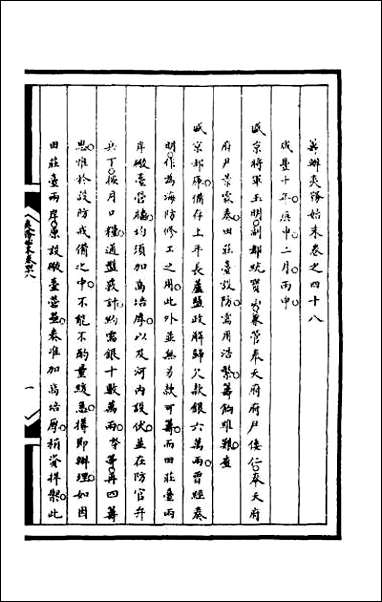 籌辦夷務始末卷之四十八
咸豐十年庚申二月丙申
盛京將軍玉明副都統賢兼管奉天府府尹倭仁奉天府
府尹景霖奏田莊臺設防需用浩繁籌餉維艱查
盛京部庫備存上年長蘆鹽政解歸欠款銀六萬兩曾經奏
明作為海防修工之用此外並無另款可籌而田莊臺兩
岸礮臺營牆均須加高培厚以及河內設伏並在防官弁
兵丁按月口糧通盤覈計約需銀十數萬兩等再四籌
思惟於設防戒備之中不能不酌量緩急擇即辦理如因
田莊臺兩岸原設礮臺營壘奏准加高培厚稍資捍禦此